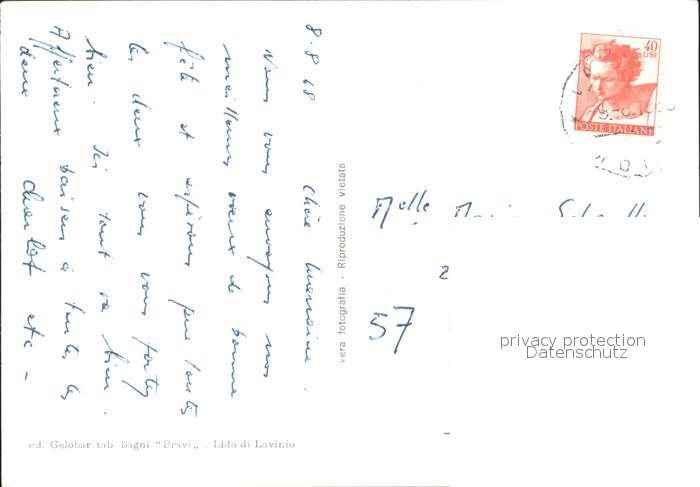 8.8.68
Chère marraine.
Nous vous envoyons nos
meilleurs vœux de bonne
fête et espérons que toutes
les deux vous vous portez
bien. Ici tout va bien.
Affectueux baisers à toutes les
deux
Charlot etc -
vera fotografia - Riproduzione vietata
ed. Gelobar tab. bagni "Bravi„ - Lido di Lavinio
40
LIRE
POSTE ITALIANE
Melle
57
privacy protection
Datenschutz